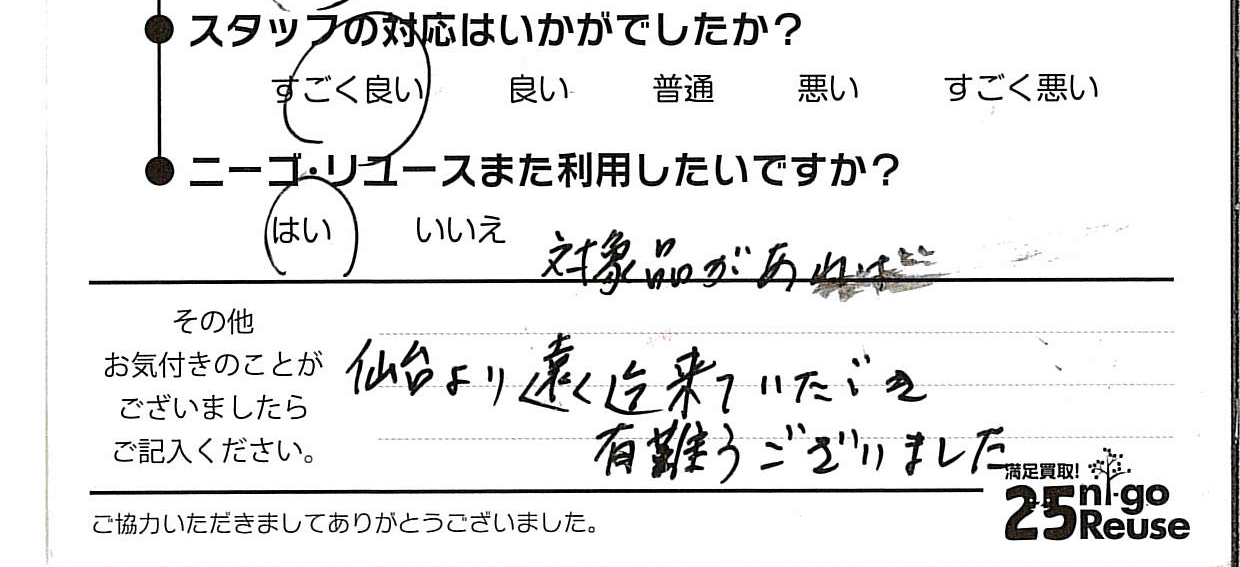 スタッフの対応はいかがでしたか？
すごく良い 良い 普通 悪い すごく悪い
ニーゴ・リユースまた利用したいですか？
はい いいえ
対象品があれば
その他
お気付きのことが
ございましたら
ご記入ください。
仙台より遠く迄来ていただき
有難うございました
満足買取！
25 ni-go
Reuse
ご協力いただきましてありがとうございました。